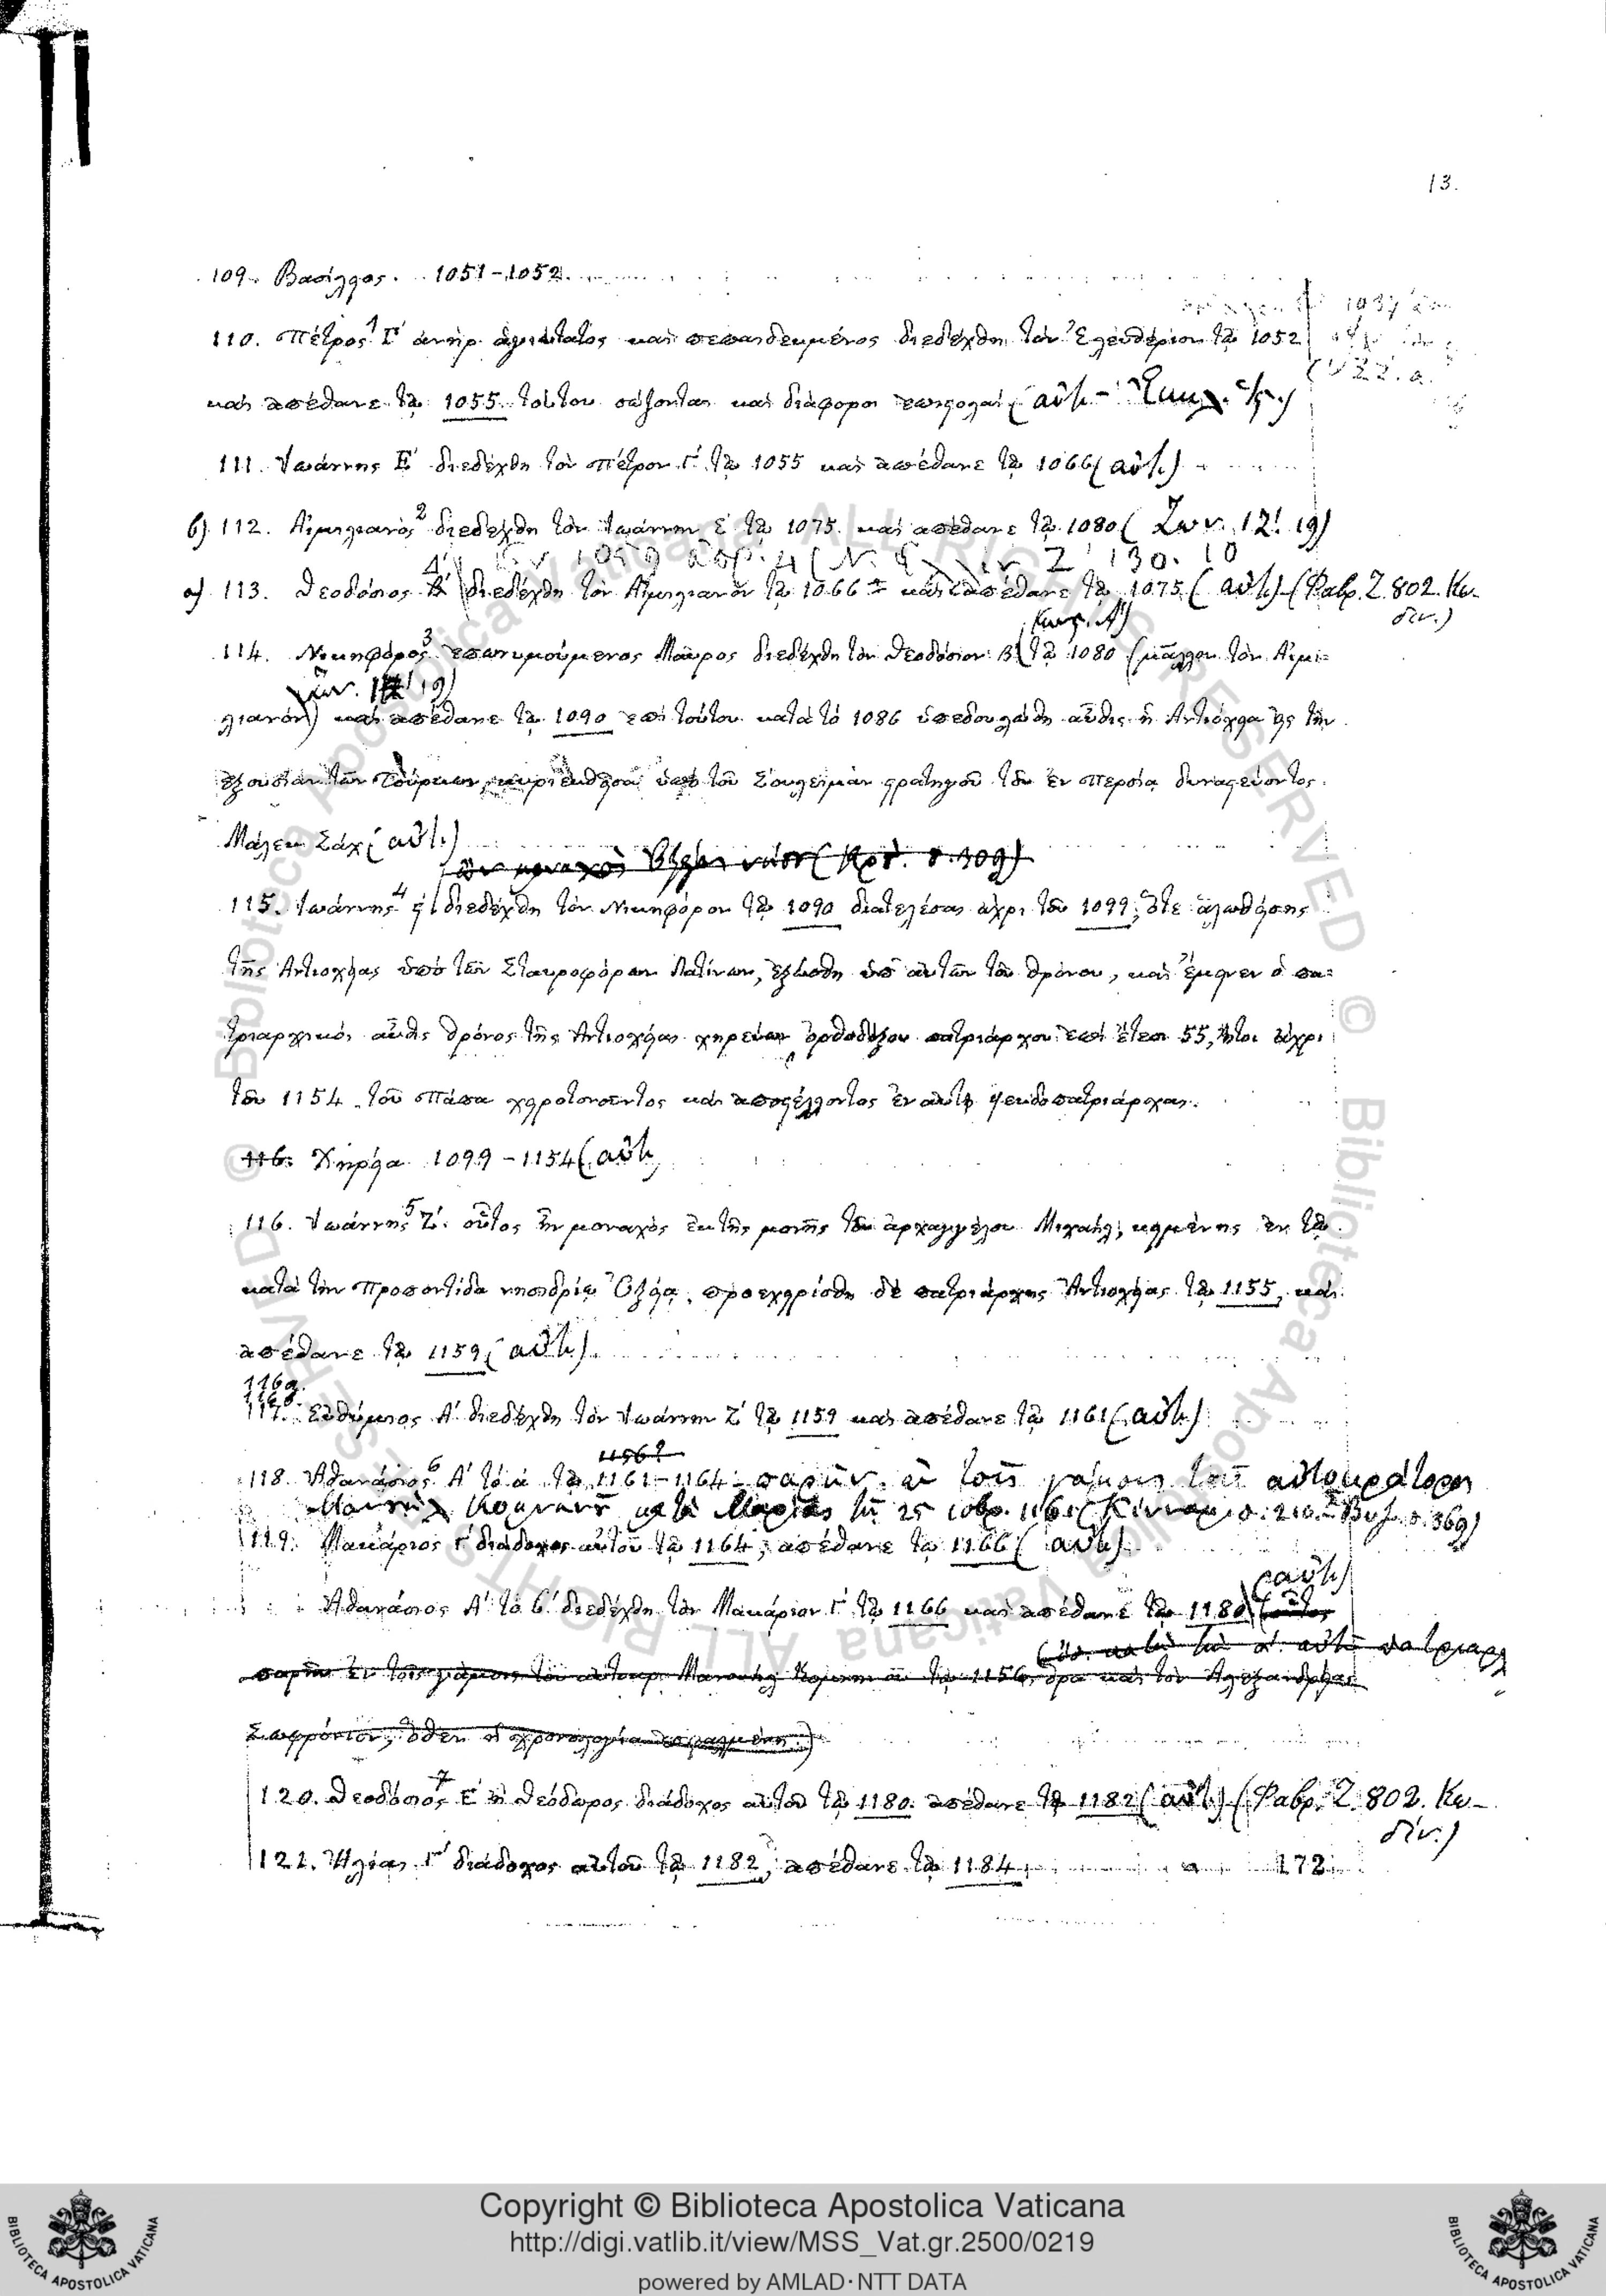 13.
109. Βασίλειος. 1051-1052.
110. Πέτρος¹ Γ΄ ἀνὴρ ἁγιώτατος καὶ πεπαιδευμένος διεδέχθη τὸν Ἐλευθέριον τῷ 1052
καὶ ἀπέθανε τῷ 1055 τούτου σώζονται καὶ διάφοροι ἐπιστολαί (αὐτ.
111. Ἰωάννης Ε΄ διεδέχθη τὸν Πέτρον Γ΄ τῷ 1055 καὶ ἀπέθανε τῷ 1066 (αὐτ.)
β) 112. Αἰμιλιανὸς² διεδέχθη τὸν Ἰωάννην Ε΄ τῷ 1075 καὶ ἀπέθανε τῷ 1080 (Ζων. 12! 19)
1059 Z 130. 10
α) 113. Θεοδόσιος διεδέχθη τὸν Αἰμιλιανὸν τῷ 1066 καὶ ἀπέθανε τῷ 1075 (αὐτ.) (Φαβρ. Ζ. 802. Κω-
διν.)
114. Νικηφόρος³ ἐπονυμούμενος Μαῦρος διεδέχθη τὸν Θεοδόσιον Β τῷ 1080 (μᾶλλον τὸν Αἰμι=
λιανόν) καὶ ἀπέθανε τῷ 1090 ἐπὶ τούτου κατὰ τὸ 1086 ὑπεδουλώθη αὖθις ἡ Ἀντιόχεια εἰς τὴν
ἐξουσίαν τῶν Τούρκων, κυριευθεῖσα ὑπὸ τοῦ Σουλεϊμὰν στρατηγοῦ τοῦ ἐν Περσίᾳ δυναστεύοντος
Μάλεκ Σάχ (αὐτ.)
115. Ἰωάννης⁴ ϛ΄ διεδέχθη τὸν Νικηφόρον τῷ 1090 διατελέσας ἄχρι τοῦ 1099, ὅτε ἁλωθείσης
τῆς Ἀντιοχείας ὑπὸ τῶν Σταυροφόρων Λατίνων, ἐξώσθη ὑπ᾽ αὐτῶν τοῦ θρόνου, καὶ ἔμεινεν ὁ πα=
τριαρχικὸς αὖθις θρόνος τῆς Ἀντιοχείας χηρεύων ὀρθοδόξου πατριάρχου ἐπὶ ἔτεσι 55, ἤτοι ἄχρι
τοῦ 1154 τοῦ Πάπα χειροτονοῦντος καὶ ἀποστέλλοντος ἐν αὐτῷ ψευδοπατριάρχας.
116. Χηρεία 1099-1154 (αὐτ.
116. Ἰωάννης⁵ Ζ΄. οὗτος ἦν μοναχὸς ἐκ τῆς μονῆς τοῦ ἀρχαγγέλου Μιχαήλ, κειμένης ἐν τῷ
κατὰ τὴν Προποντίδα νησιδρίῳ Ὀξείᾳ, προεχειρίσθη δὲ πατριάρχης Ἀντιοχείας τῷ 1155, καὶ
ἀπέθανε τῷ 1159 (αὐτ.)
116α.
117. Εὐθύμιος Α΄ διεδέχθη τὸν Ἰωάννην Ζ΄ τῷ 1159 καὶ ἀπέθανε τῷ 1161 (αὐτ.)
1156?
118. Ἀθανάσιος⁶ Α΄ τὸ α΄ τῷ 1161-1164 παρῆν ἐν τοῖς γάμοις τοῦ αὐτοκράτορος
Μανουὴλ Κομνηνοῦ μετὰ Μαρίας τῇ 25 1161 (Κίνναμ. σ. 210. σ. 369)
119. Μακάριος Γ΄ διάδοχος αὐτοῦ τῷ 1164, ἀπέθανε τῷ 1166 (αὐτ.)
(αὐτ.)
Ἀθανάσιος Α΄ τὸ β΄ διεδέχθη τὸν Μακάριον Γ΄ τῷ 1166 καὶ ἀπέθανε τῷ 1180 (οὗτος
παρῆν ἐν τοῖς γάμοις τοῦ αὐτοκρ. Μανουὴλ Κομνην τῷ 1156, ὅρα καὶ τὸν Ἀλεξανδρείας
Σωφρόνιον, ὅθεν ἡ χρονολογία ἐσφαλμένη.)
120. Θεοδόσιος⁷ Ε΄ ἢ Θεόδωρος διάδοχος αὐτοῦ τῷ 1180. ἀπέθανε τῷ 1182 (αὐτ.) (Φαβρ. Ζ. 802. Κω-
διν.)
121. Ἠλίας Γ΄ διάδοχος αὐτοῦ τῷ 1182, ἀπέθανε τῷ 1184 172
© Biblioteca Apostolica Vaticana ALL RIGHTS RESERVED
© Biblioteca Apostolica Vaticana ALL RIGHTS RESERVED
Copyright © Biblioteca Apostolica Vaticana
http://digi.vatlib.it/view/MSS_Vat.gr.2500/0219
powered by AMLAD·NTT DATA
BIBLIOTECA APOSTOLICA VATICANA
BIBLIOTECA APOSTOLICA VATICANA